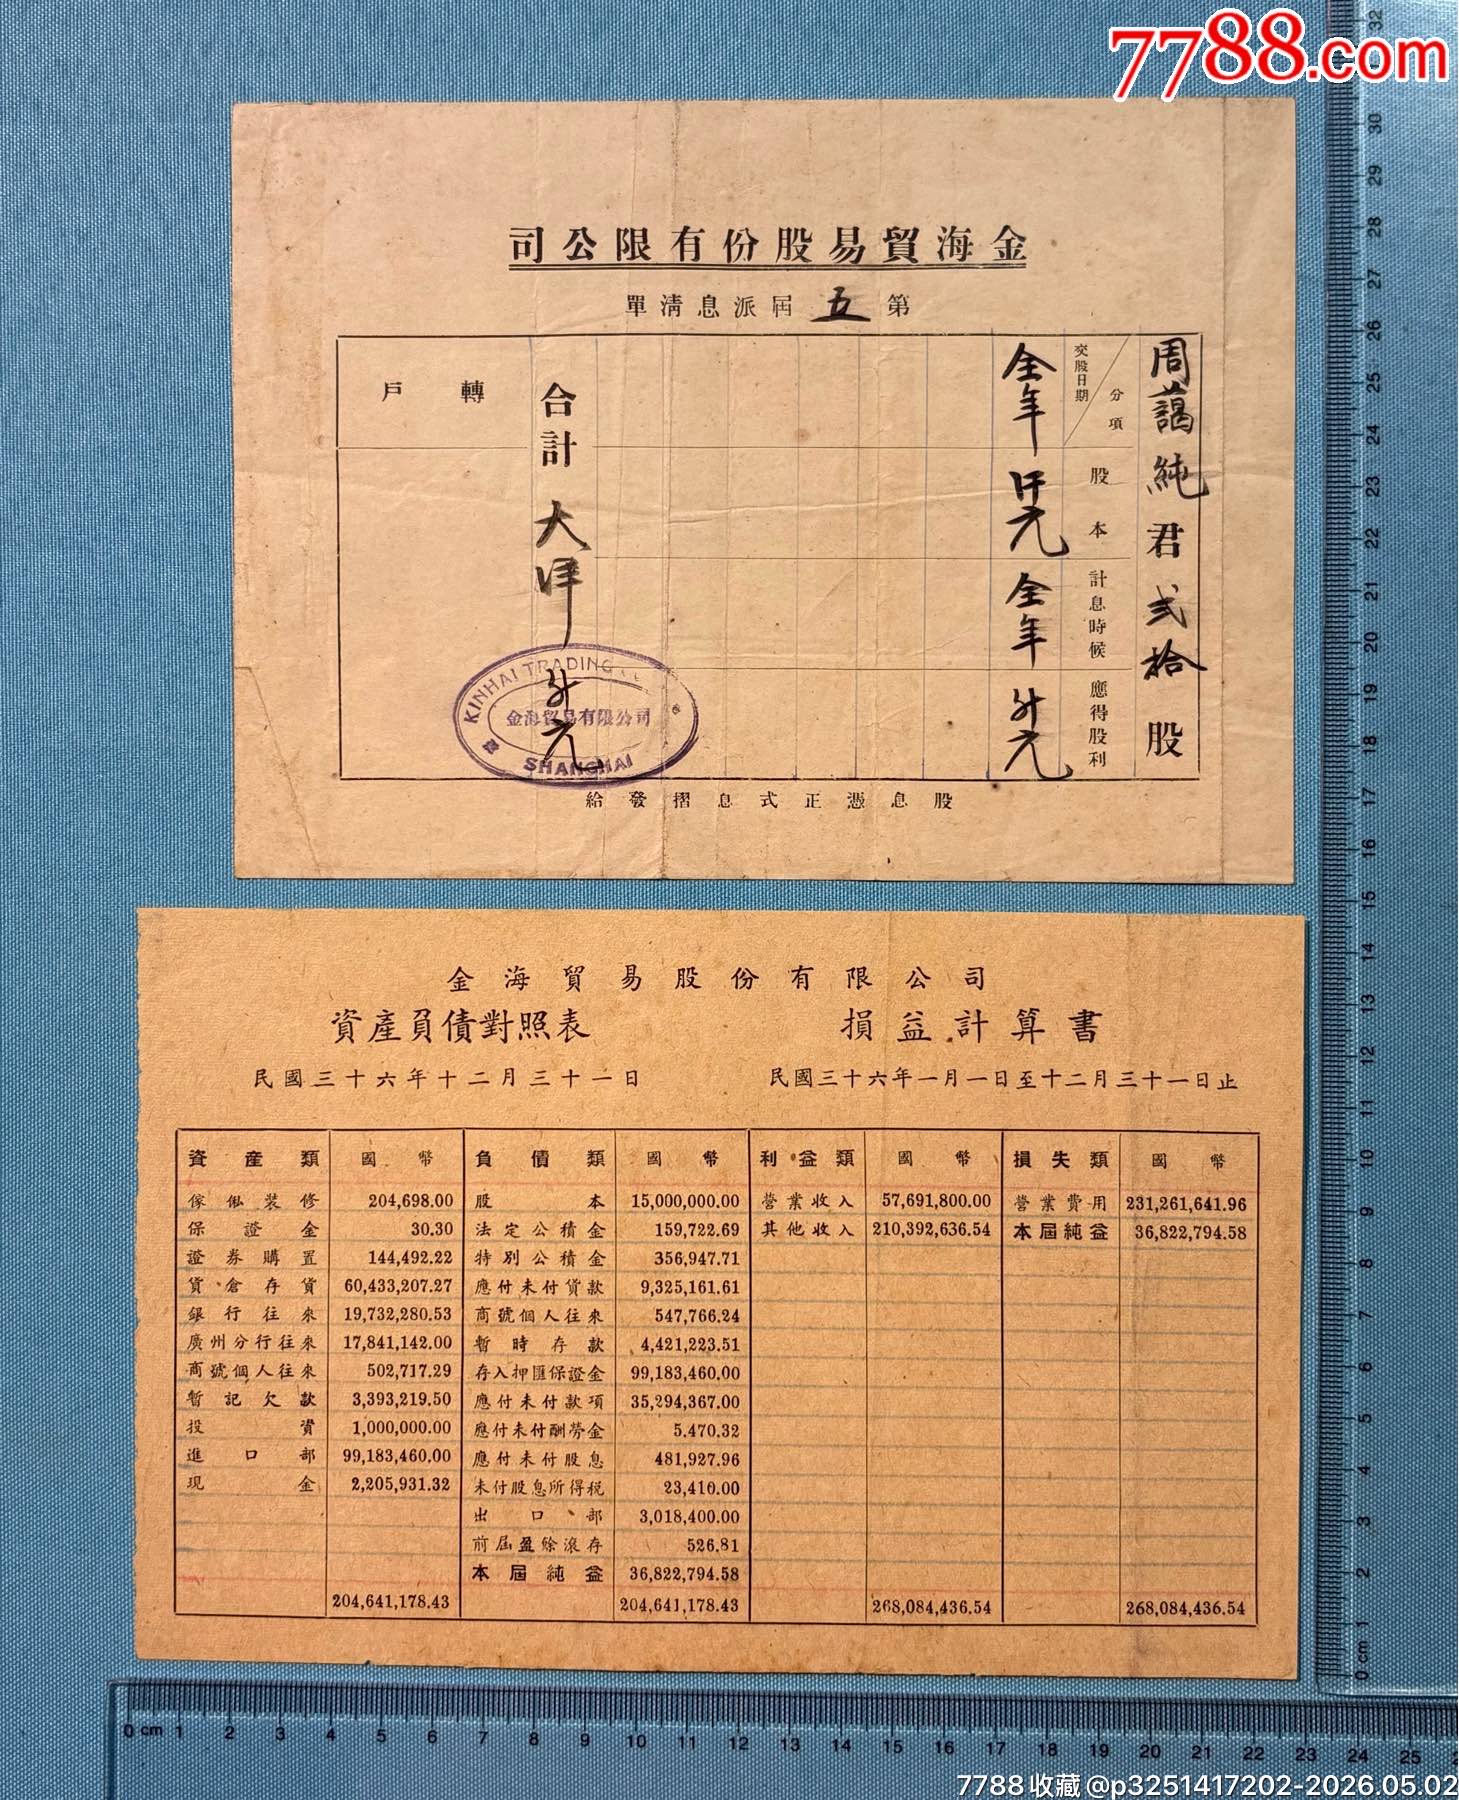 7788.com
金海貿易股份有限公司
第五屆派息清單
周藹純君弍拾股
分項
交股日期
股本
計息時候
應得股利
全年
仟元
全年
元
合計大洋
元
轉戶
KINHAI TRADING
金海貿易有限公司
SHANGHAI
股息憑正式息摺發給
金海貿易股份有限公司
資產負債對照表 損益計算書
民國三十六年十二月三十一日 民國三十六年一月一日至十二月三十一日止
資產類 國幣 負債類 國幣 利益類 國幣 損失類 國幣
傢俬裝修 204,698.00 股本 15,000,000.00 營業收入 57,691,800.00 營業費用 231,261,641.96
保證金 30.30 法定公積金 159,722.69 其他收入 210,392,636.54 本屆純益 36,822,794.58
證券購置 144,492.22 特別公積金 356,947.71
貨倉存貨 60,433,207.27 應付未付貨款 9,325,161.61
銀行往來 19,732,280.53 商號個人往來 547,766.24
廣州分行往來 17,841,142.00 暫時存款 4,421,223.51
商號個人往來 502,717.29 存入押匯保證金 99,183,460.00
暫記欠款 3,393,219.50 應付未付款項 35,294,367.00
投資 1,000,000.00 應付未付酬勞金 5.470.32
進口部 99,183,460.00 應付未付股息 481,927.96
現金 2,205,931.32 未付股息所得稅 23,410.00
出口部 3,018,400.00
前屆盈餘滾存 526.81
本屆純益 36,822,794.58
204,641,178.43 204,641,178.43 268,084,436.54 268,084,436.54
0 cm 1 2 3 4 5 6 7 8 9 10 11 12 13 14 15 16 17 18 19 20 21 22 23 24 25
0 cm 1 2 3 4 5 6 7 8 9 10 11 12 13 14 15 16 17 18 19 20 21 22 23 24 25 26 27 28 29 30 31 32
7788收藏@p3251417202-2026.05.02